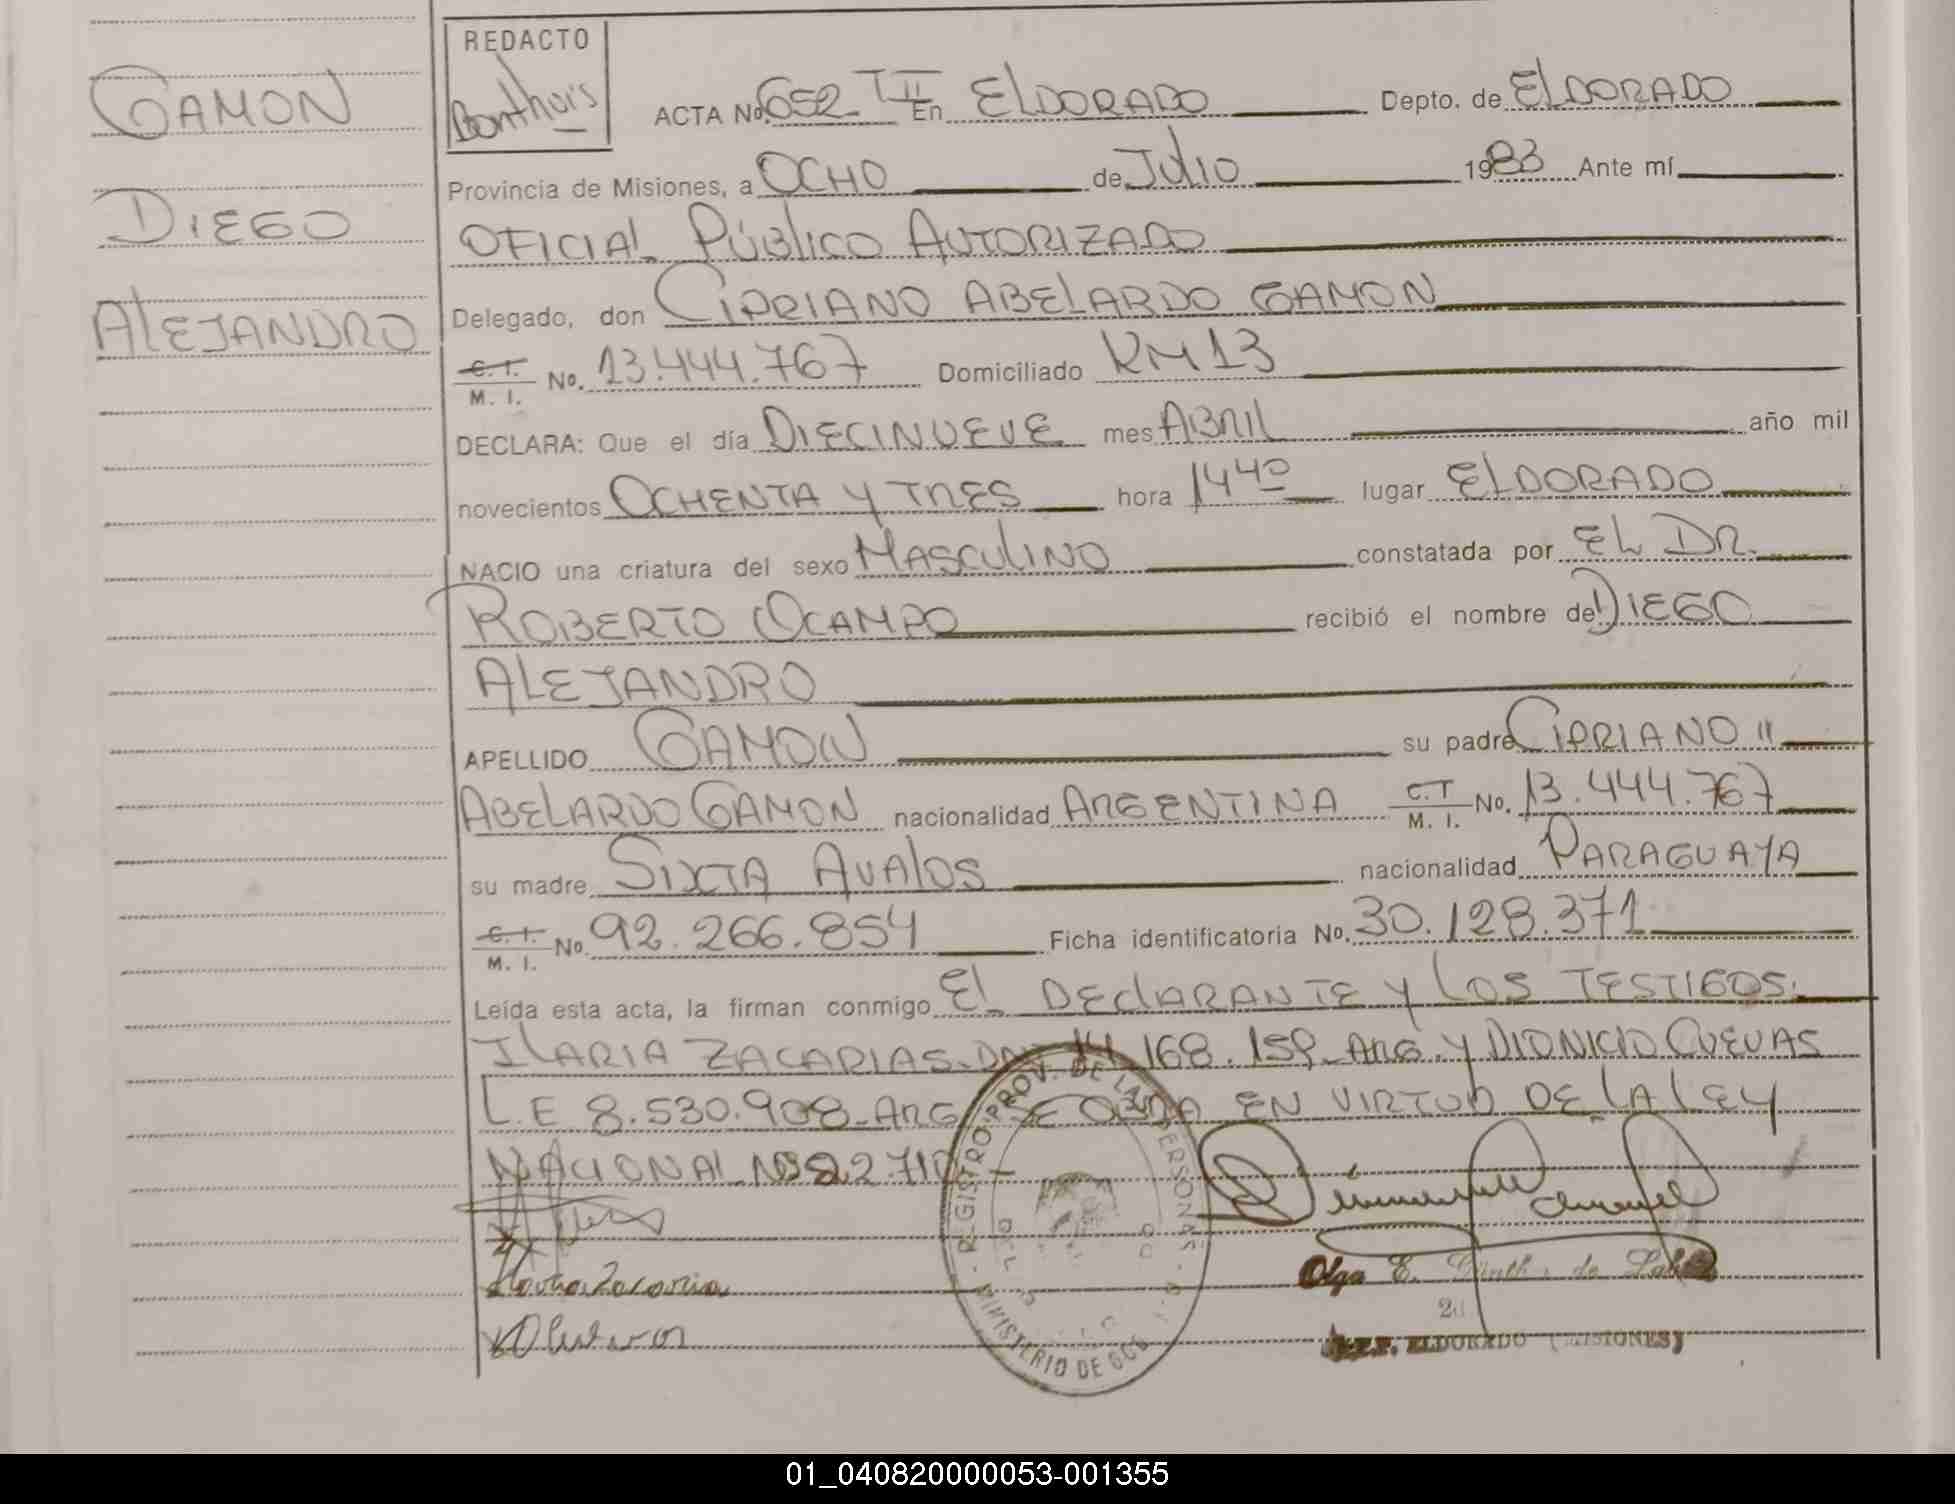 GAMON
DIEGO
ALEJANDRO
REDACTO
Bonthuis
ACTA No. 652 - T II En ELDORADO Depto. de ELDORADO
Provincia de Misiones, a OCHO de Julio 1983 Ante mí
OFICIAL PÚBLICO AUTORIZADO
Delegado, don CIPRIANO ABELARDO GAMON
C. I. M. I. No. 13.444.767 Domiciliado KM 13
DECLARA: Que el día DIECINUEVE mes ABRIL año mil
novecientos OCHENTA Y TRES hora 14 40 lugar ELDORADO
NACIO una criatura del sexo MASCULINO constatada por EL DR.
ROBERTO OCAMPO recibió el nombre de DIEGO
ALEJANDRO
APELLIDO GAMON su padre CIPRIANO "
ABELARDO GAMON nacionalidad ARGENTINA C.I M. I. No. 13.444.767
su madre SIXTA AVALOS nacionalidad PARAGUAYA
C. I. M. I. No. 92.266.854 Ficha identificatoria No. 30.128.371
Leída esta acta, la firman conmigo EL DECLARANTE Y LOS TESTIGOS:
ILARIA ZACARIAS - DNI 14.168.159 - ARG. Y DIONICIO CUEVAS
L.E 8.530.908 - ARG. SE EN VIRTUD DE LA LEY
NACIONAL Nº 22.710
REGISTRO PROV. DE LAS PERSONAS
MINISTERIO DE GOB
Olga E. de
ELDORADO (MISIONES)
01_040820000053-001355